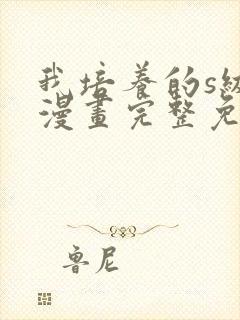 我培养的s級
漫畫完整免
鲁尼